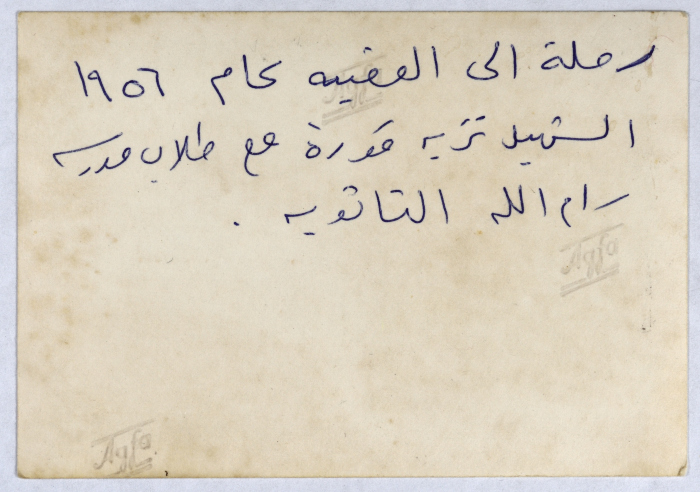 رحلة الى العقبه عام ١٩٥٦
الشهيد نزيه قورة مع طلاب مدرسه
رام الله الثانويه .
Agfa
Agfa
Agfa